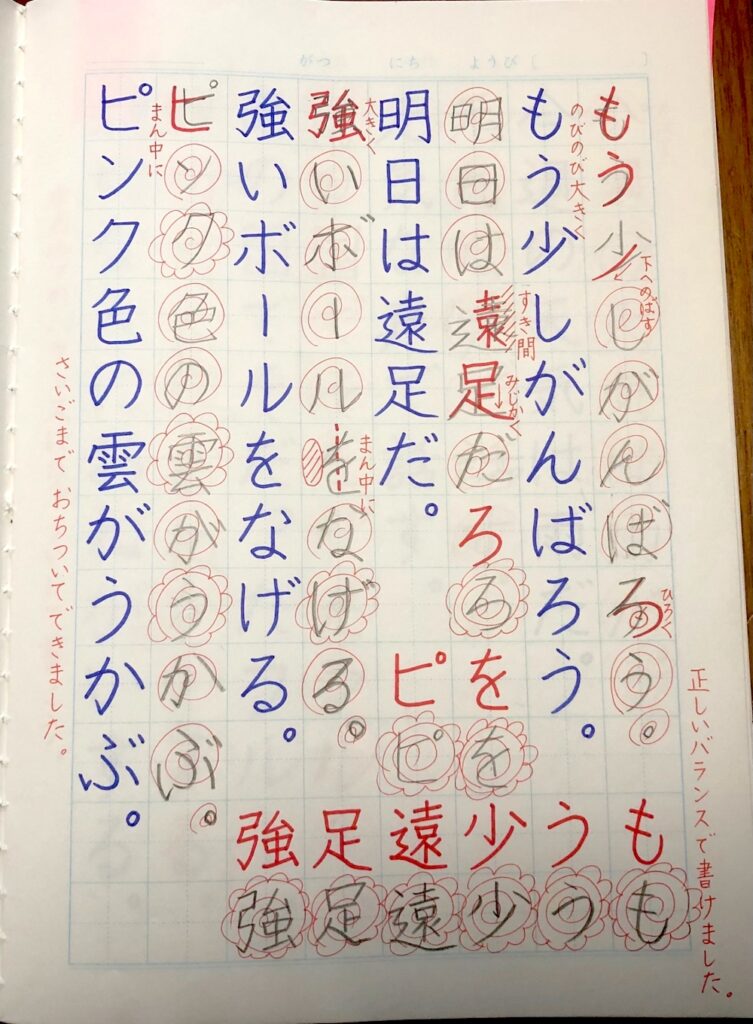 がつ　にち　ようび〔　〕
正しいバランスで書けました。
もう少しがんばろう。
下へのばす
ひろく
もも
のびのび大きく
もう少しがんばろう。
うう
明日は遠足だ
すき間
みじかく
ろろ
をを
少少
明日は遠足だ。
ピピ
遠遠
大きく
強いボールをなげる。
まん中に
足足
強いボールをなげる。
強強
ピンク色の雲がうかぶ。
まん中に
ピンク色の雲がうかぶ。
さいごまでおちついてできました。